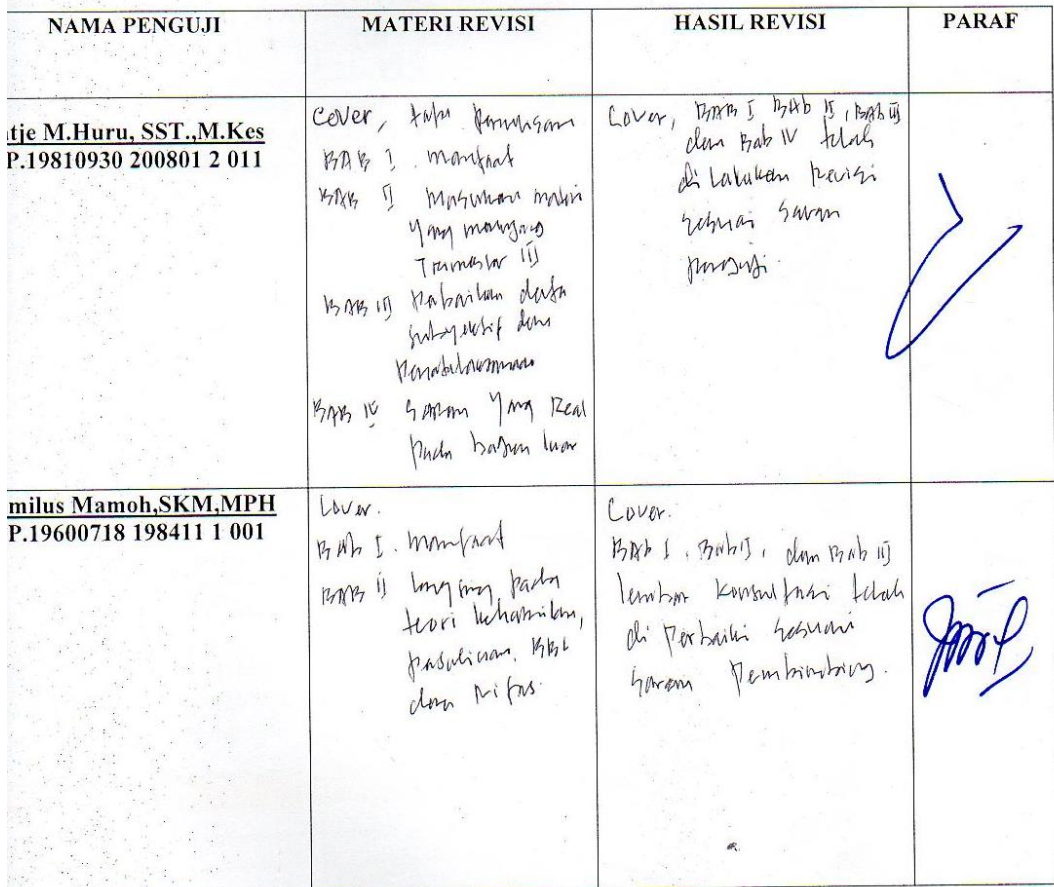 NAMA PENGUJI
MATERI REVISI
HASIL REVISI
PARAF
tje M.Huru, SST.,M.Kes
P.19810930 200801 2 011
Cover, tata penulisan
BAB I manfaat
BAB II Masukan materi
yang
Trimester III
BAB III Perbaikan data
subyektif dan
Penatalaksanaan
BAB IV Saran yang Real
pada bagian luar
Cover, BAB I BAb II, BAb III
dan Bab IV telah
di Lakukan Revisi
sesuai Saran
penguji.
milus Mamoh,SKM,MPH
P.19600718 198411 1 001
Cover.
BAb I. manfaat
BAB II langsung pada
teori kehamilan,
persalinan, BBL
dan Nifas.
Cover.
BAb I, Bab II, dan Bab III
lembar Konsultasi telah
di Perbaiki sesuai
saran Pembimbing.